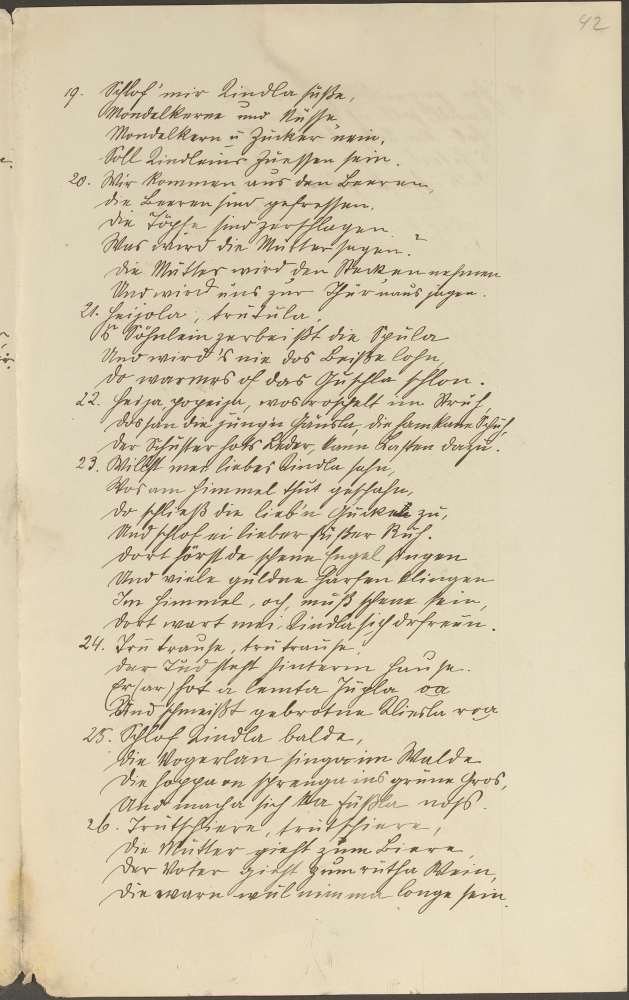 42
19. Schlof' mir Kindla süße,
Mondelkerne und Nüsse
Mondelkern u Zucker nein,
Soll Kindleins Zuessen sein.
20. Wir kommen aus den Beeren,
die Beeren sind gefressen.
Die Töpfe sind zerschlagen
Was wird die Mutter sagen?
Die Mutter wird den Stecken nehmen
Und wird uns zur Thür naus jagen.
21. Heijola, trutula,
's Söhnlein zerbeißt die Spula
Und wird's nie dos Beißbe lohn,
do warmrs of das Guschla schlon.
22. Heija, popeija, wos roschelt im Struh,
dos san die jungen Gänsla, die ham kane Schuh,
Der Schuster hots Leder, kann Laisten dazu.
23. Willst mei liebes Kindla sahn,
Wos am Himmel thut geschahn,
do schließ die lieb'n Gucken zu,
Und schlof ei lieber süßer Ruh.
Dort hörst de schene Engel singen
Und viele guldne Harfen klingen
Im Himmel, och, muß schene sein,
dort wart mei Kindla sich drfreun.
24. Trutrause, trutrause,
der Tud steht hinterm Hause.
Er (ar) hot a lemta Jupla oa
Und schmeißt gebrotne Kliesla roa
25. Schlof Kindla balde,
die Vogerlan singa im Walde
Die hoppa on sprenga ins grüne Gros,
Und macha sich die Füßla noß.
26. Trutschiere, trutschiere,
Die Mutter gieht zum Biere
Der Voter gieht zum rutha Wein,
die warn wul nimma longe sein.